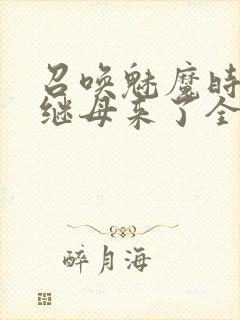 召唤魅魔时
继母来了全
醉月海